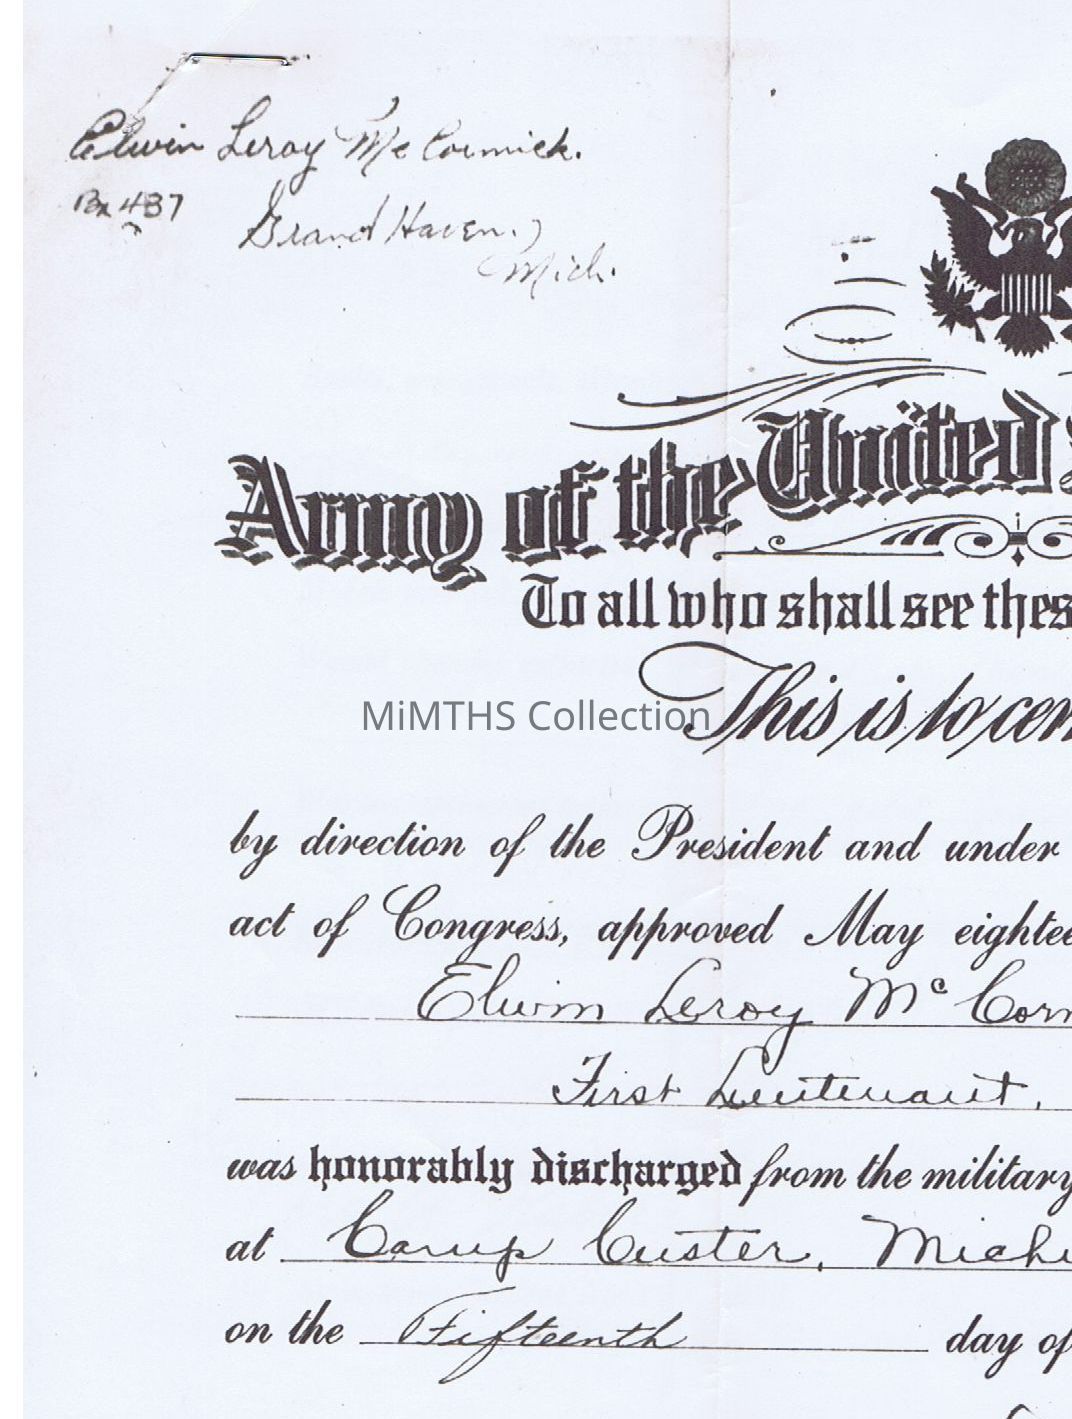 Elwin Leroy McCormick.
Bx 437
Grand Haven,
Mich.
Army of the United
To all who shall see thes
This is to cer
MiMTHS Collection
by direction of the President and under
act of Congress, approved May eightee
Elwin Leroy Mc Corm
First Lieutenant,
was honorably discharged from the military
at Camp Custer, Michi
on the Fifteenth day of